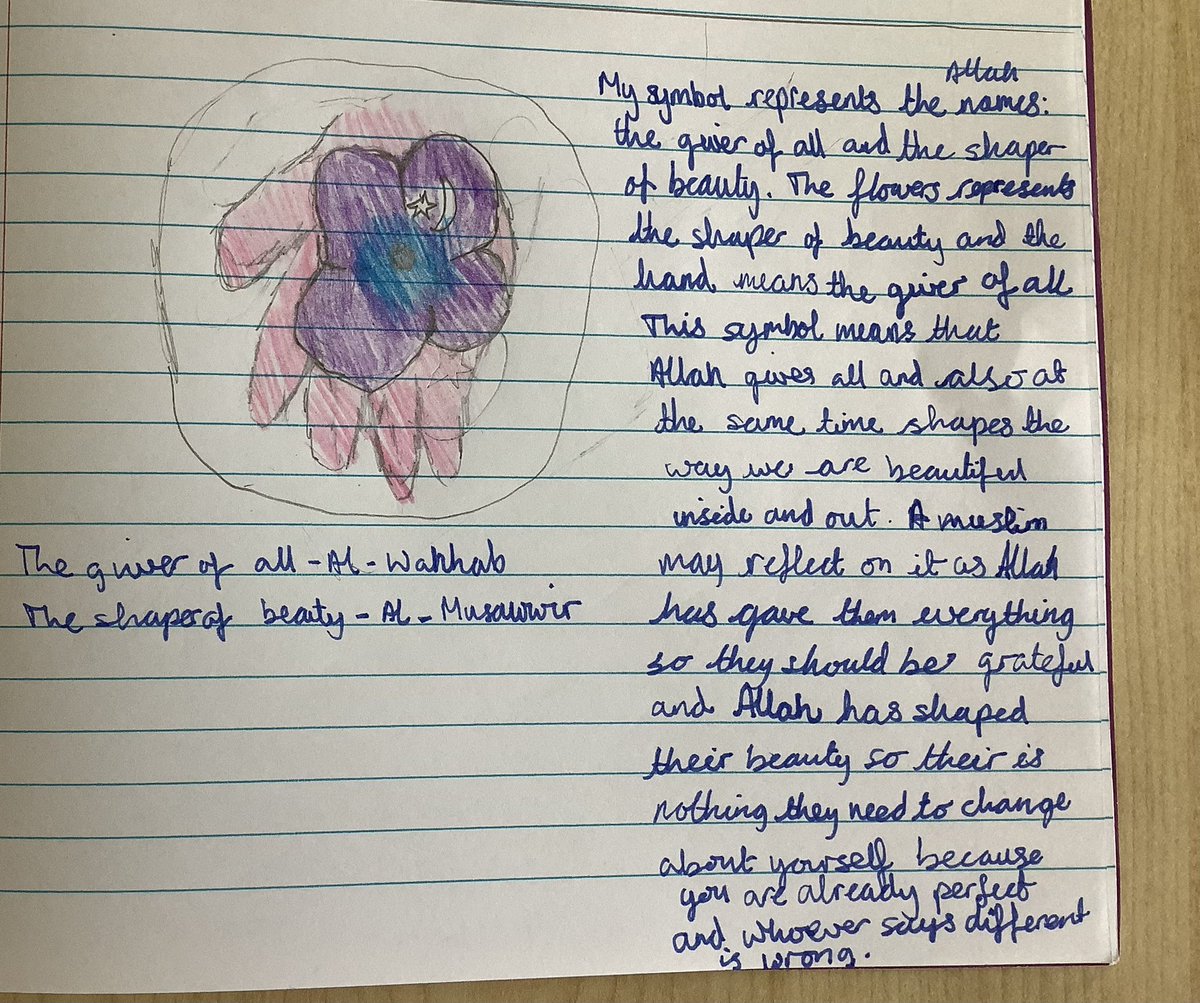 Allah
My symbol represents the names:
the giver of all and the shaper
of beauty. The flowers represents
the shaper of beauty and the
hand means the giver of all
This symbol means that
Allah gives all and also at
the same time shapes the
way we are beautiful
inside and out. A muslim
may reflect on it as Allah
has gave them everything
so they should be grateful
and Allah has shaped
their beauty so their is
nothing they need to change
about yourself because
you are already perfect
and whoever says different
is wrong.
The giver of all - Al - Wahhab
The shaper of beauty - Al - Musawwir